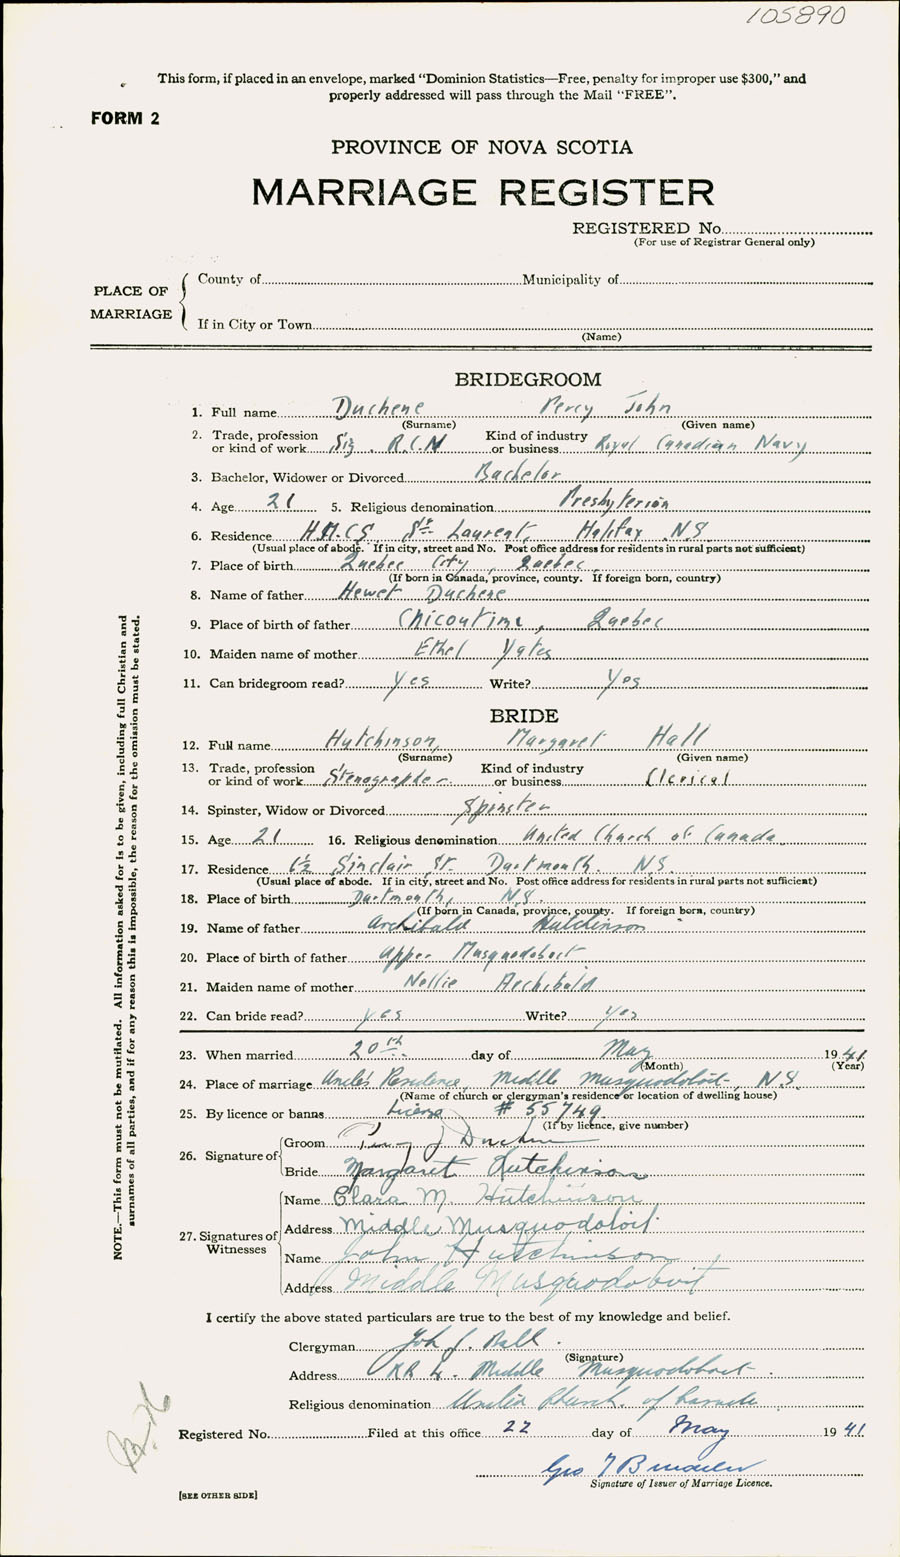 105890
This form, if placed in an envelope, marked “Dominion Statistics—Free, penalty for improper use $300,” and
properly addressed will pass through the Mail “FREE”.
FORM 2
PROVINCE OF NOVA SCOTIA
MARRIAGE REGISTER
REGISTERED No.
(For use of Registrar General only)
PLACE OF MARRIAGE
County of Municipality of
If in City or Town
(Name)
BRIDEGROOM
1. Full name Duchene Percy John
(Surname) (Given name)
2. Trade, profession or kind of work Sig. R.C.N Kind of industry or business Royal Canadian Navy
3. Bachelor, Widower or Divorced Bachelor
4. Age 21 5. Religious denomination Presbyterian
6. Residence H.M.C.S. St. Laurent, Halifax N.S.
(Usual place of abode. If in city, street and No. Post office address for residents in rural parts not sufficient)
7. Place of birth Quebec City, Quebec
(If born in Canada, province, county. If foreign born, country)
8. Name of father Hewet Duchene
9. Place of birth of father Chicoutimi, Quebec
10. Maiden name of mother Ethel Yates
11. Can bridegroom read? yes Write? Yes
BRIDE
12. Full name Hutchinson, Margaret Hall
(Surname) (Given name)
13. Trade, profession or kind of work Stenographer Kind of industry or business Clerical
14. Spinster, Widow or Divorced Spinster
15. Age 21 16. Religious denomination United Church of Canada
17. Residence 6½ Sinclair St. Dartmouth. N.S.
(Usual place of abode. If in city, street and No. Post office address for residents in rural parts not sufficient)
18. Place of birth Dartmouth, N.S.
(If born in Canada, province, county. If foreign born, country)
19. Name of father Archibald Hutchinson
20. Place of birth of father Upper Musquodoboit
21. Maiden name of mother Nellie Archibald
22. Can bride read? yes Write? yes
23. When married 20th day of May 1941
(Month) (Year)
24. Place of marriage Uncle's Residence, Middle Musquodoboit, N.S.
(Name of church or clergyman's residence or location of dwelling house)
25. By licence or banns License # 55749
(If by licence, give number)
26. Signature of Groom Percy J Duchene
Bride Margaret Hutchinson
27. Signatures of Witnesses Name Clara M. Hutchinson
Address Middle Musquodoboit
Name John Hutchinson
Address Middle Musquodoboit
I certify the above stated particulars are true to the best of my knowledge and belief.
Clergyman
(Signature)
Address RR 4. Middle Musquodoboit
Religious denomination United Church of Canada
Registered No. Filed at this office 22 day of May 1941
Geo
Signature of Issuer of Marriage Licence.
[SEE OTHER SIDE]
NOTE.—This form must not be mutilated. All information asked for is to be given, including full Christian and
surnames of all parties, and if for any reason this is impossible, the reason for the omission must be stated.